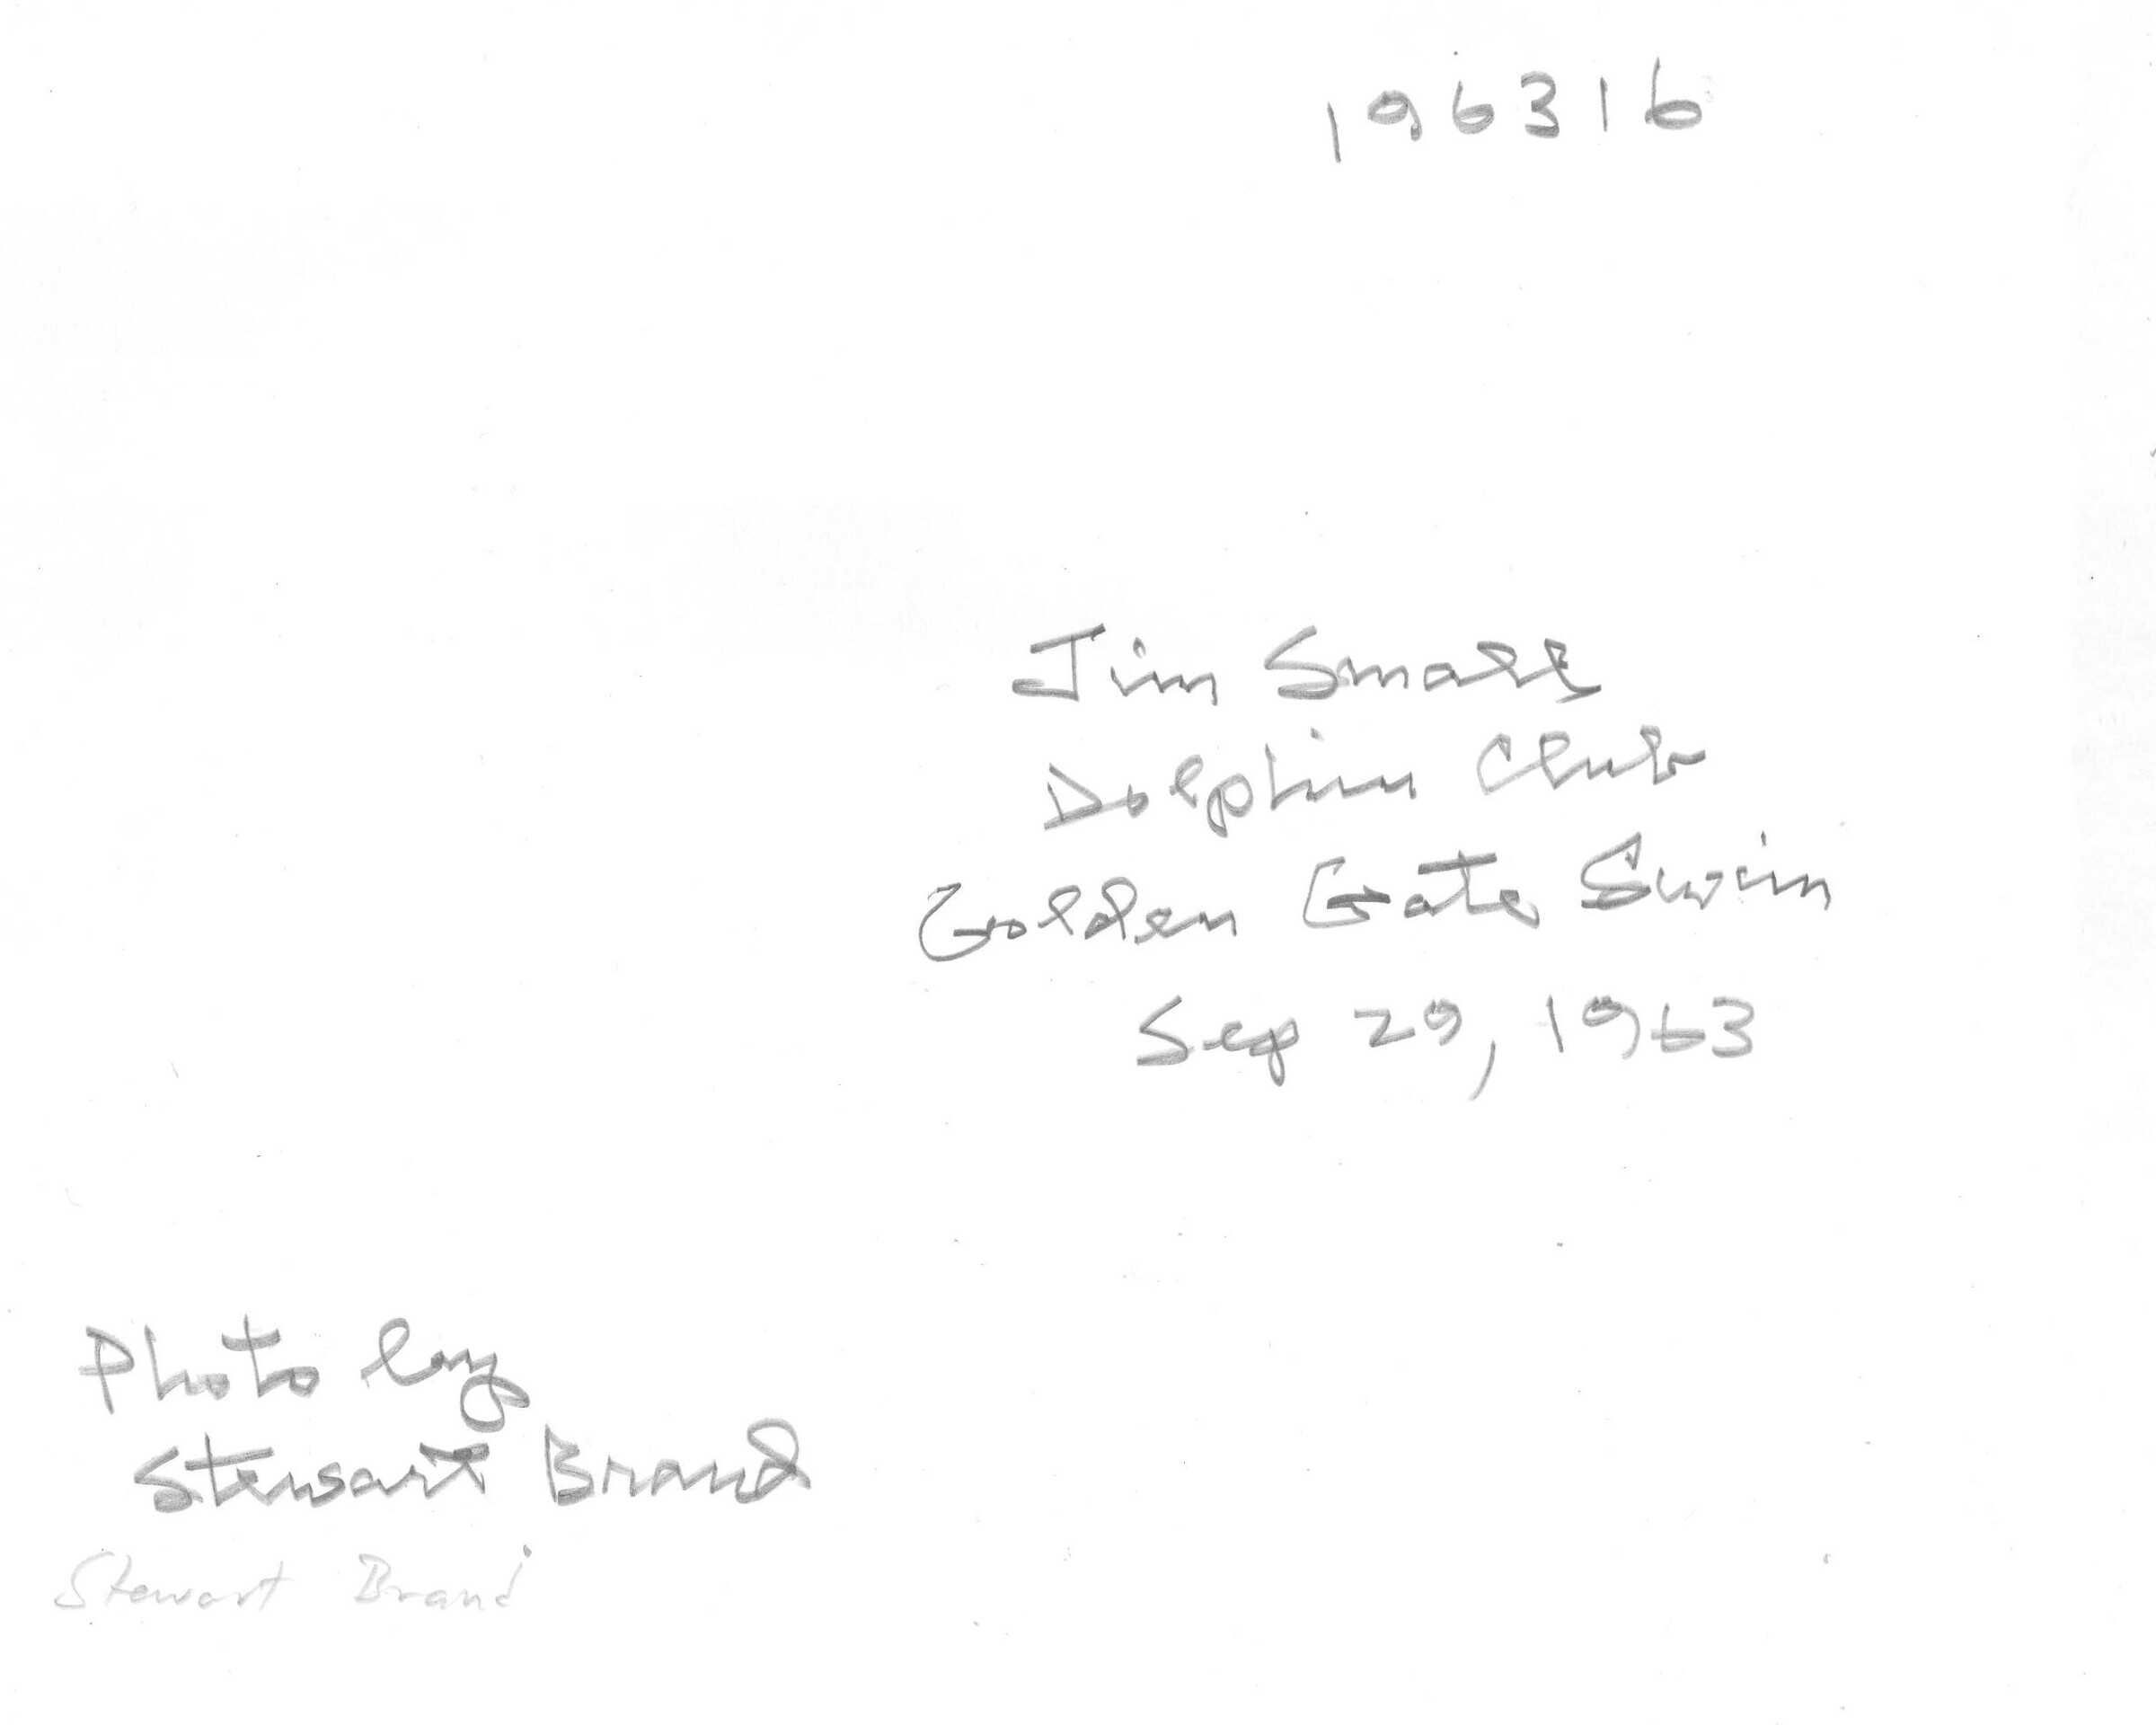 196316
Jim Small
Dolphin Club
Golden Gate Swim
Sep 29, 1963
Photo by
Stewart Brand
Stewart Brand